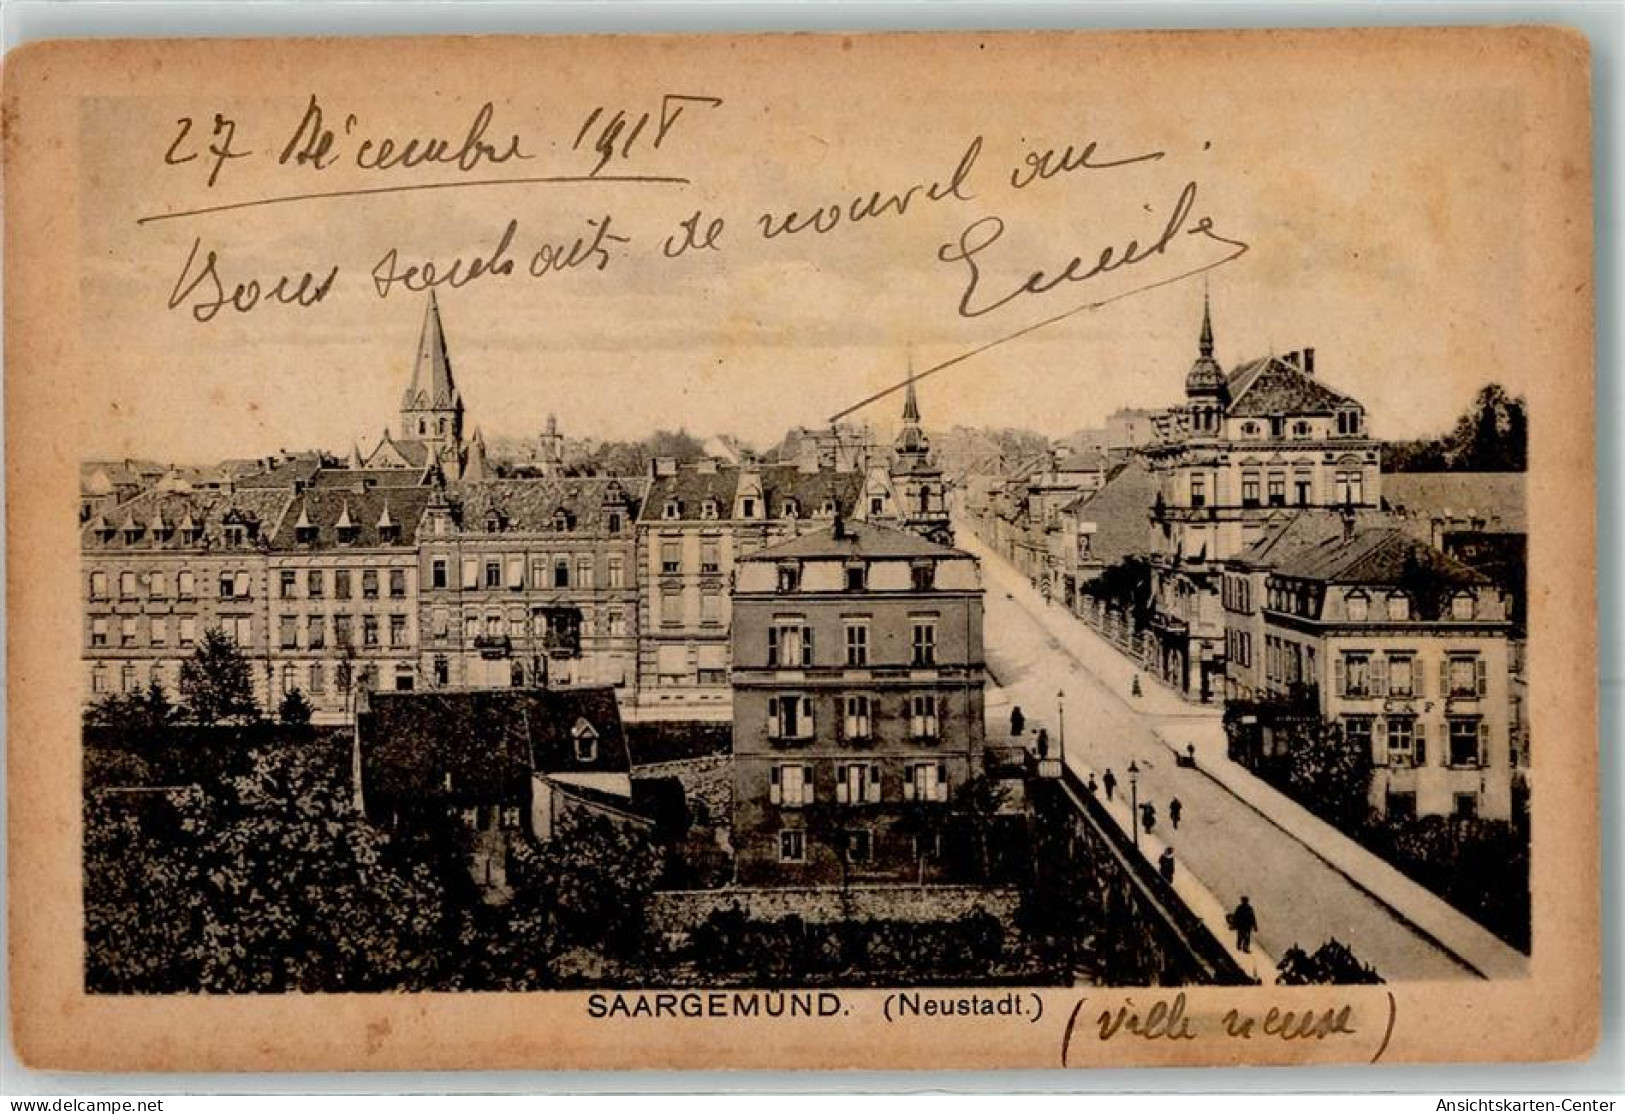 27 Décembre 1918
Bons souhaits de nouvel an.
Emile
CAFE
SAARGEMÜND. (Neustadt.) (ville neuve)
delcampe.net
Ansichtskarten-Center